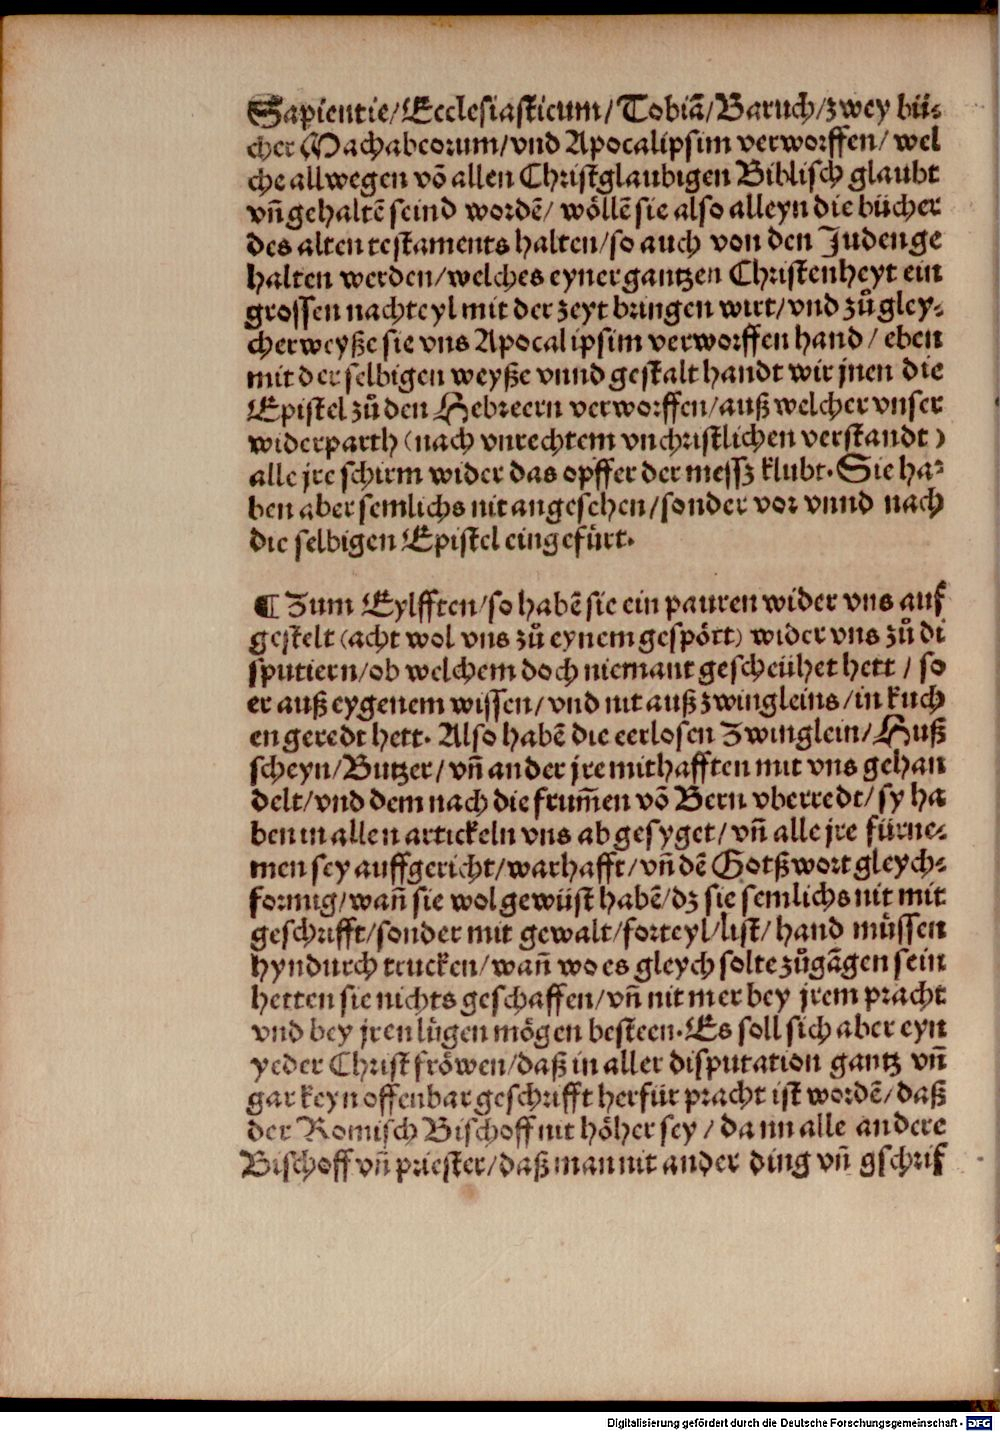 Sapientie/Ecclesiasticum/Tobiã/Baruch/zwey bü-
cher Machabeorum/vnd Apocalipsim verworffen/ wel
che allwegen võ allen Christglaubigen Biblisch glaubt
vñ gehaltẽ seind wordẽ/ wöllẽ sie also alleyn die bücher
des alten testaments halten/so auch von den Juden ge
halten werden/welches eyner gantzen Christenheyt ein
grossen nachteyl mit der zeyt bringen wirt/vnd zů gley-
cher weyße sie vns Apocalipsim verworffen hand/ eben
mit der selbigen weyße vnnd gestalt handt wir jnen die
Epistel zů den Hebreern verworffen/auß welcher vnser
widerparth (nach vnrechtem vnchristlichen verstandt)
alle jre schirm wider das opffer der messz klubt. Sie ha-
ben aber semlichs nit angesehen/sonder vor vnnd nach
die selbigen Epistel eingefürt.
¶ Zum Eylfften/so habẽ sie ein pauren wider vns auf
gestelt (acht wol vns zů eynem gespött) wider vns zů di
sputiern/ob welchem doch niemant gescheühet hett/ so
er auß eygenem wissen/vnd nit auß zwingleins/in kuch
en geredt hett. Also habẽ die eerlosen Zwinglein/Huß
scheyn/Butzer/vñ ander jre mithafften mit vns gehan
delt/vnd dem nach die frum̃en võ Bern vberredt/sy ha
ben in allen artickeln vns ab gesyget/vñ alle jre fürne-
men sey auffgericht/warhafft/vñ dẽ Gotßwort gleych-
formig/wañ sie wol gewüst habẽ/dz sie semlichs nit mit
geschrifft/sonder mit gewalt/forteyl/list/ hand müssen
hyndurch trucken/wañ wo es gleych solte zůgãgen sein
hetten sie nichts geschaffen/vñ nit mer bey jrem pracht
vnd bey jren lügen mögen besteen. Es soll sich aber eyn
yeder Christ fröwen/daß in aller disputation gantz vñ
gar keyn offenbar geschrifft herfür pracht ist wordẽ/daß
der Romisch Bischoff nit höher sey/dann alle andere
Bischoff vñ priester/daß man nit ander ding vñ gschrif
Digitalisierung gefördert durch die Deutsche Forschungsgemeinschaft - DFG